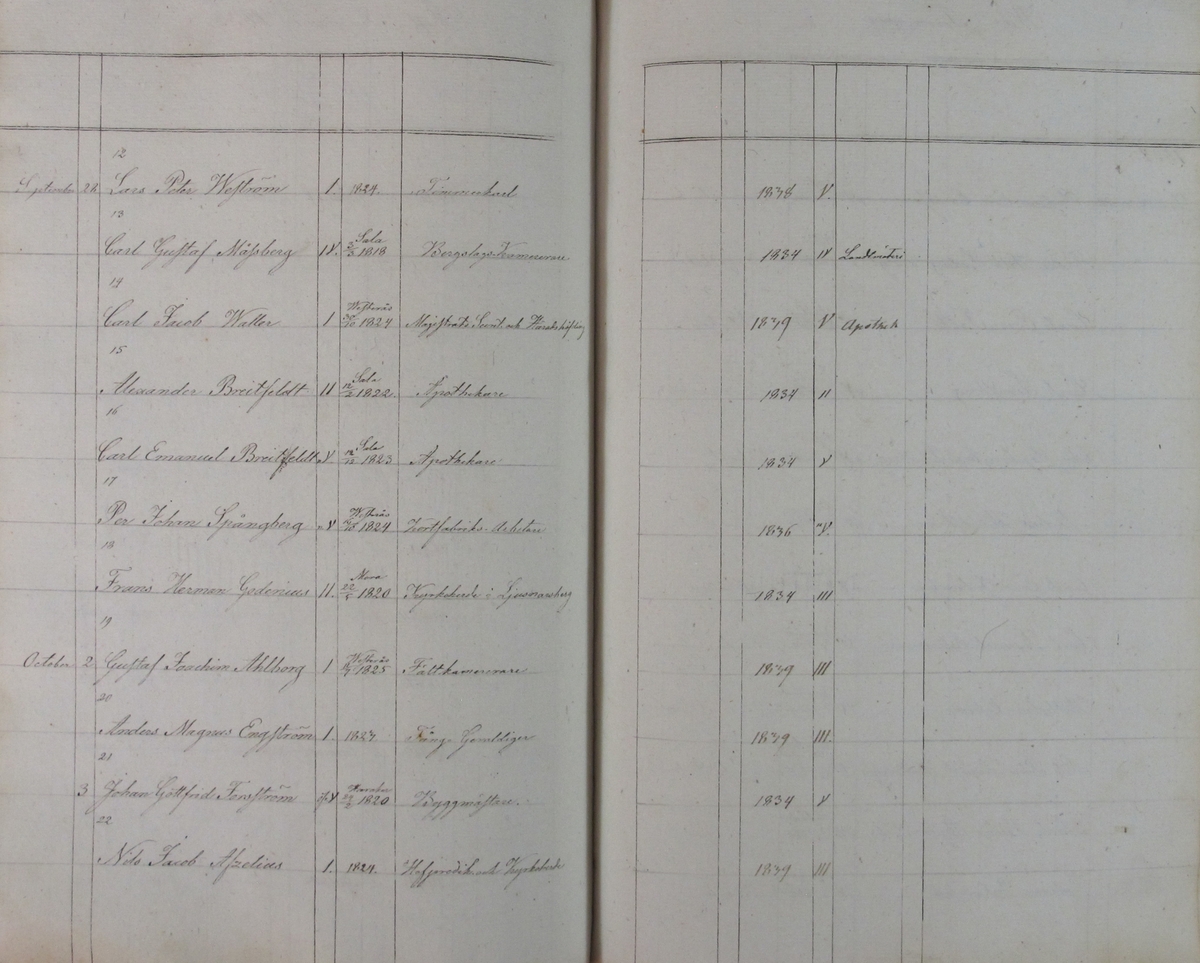 12
September 28 Lars Peter Weström I. 1824. Timmerkarl 1838 V.
13
Carl Gustaf Mossberg IV. Sala 1818 Bergslags Kamrerare 1834 IV Landtmäteri
14
Carl Jacob Walter I Westerås 1824 Magistrats Secret. och Häradshöfding 1839 V Apothek
15
Alexander Breitfeldt II Sala 12/2 1822. Apothekare 1834 II
16
Carl Emanuel Breitfeldt V. Sala 12/12 1823 Apothekare 1834 V
17
Per Johan Spångberg V Westerås 1824 Kortfabriks-Arbetare 1836 V.
18
Frans Herman Godenius II. Mora 22/5 1820 Kyrkoherde i Ljusnarsberg 1834 III
19
October 2 Gustaf Joachim Ahlborg I Westerås 1825 Fältkamrerare 1839 III
20
Anders Magnus Engström I. 1823 Fång-Gevaldiger 1839 III.
21
3 Johan Gottfrid Forsström V 1820 Byggmästare. 1834 V
22
Nils Jacob Afzelius I. 1824. Hofpredik. och Kyrkoherde 1839 III